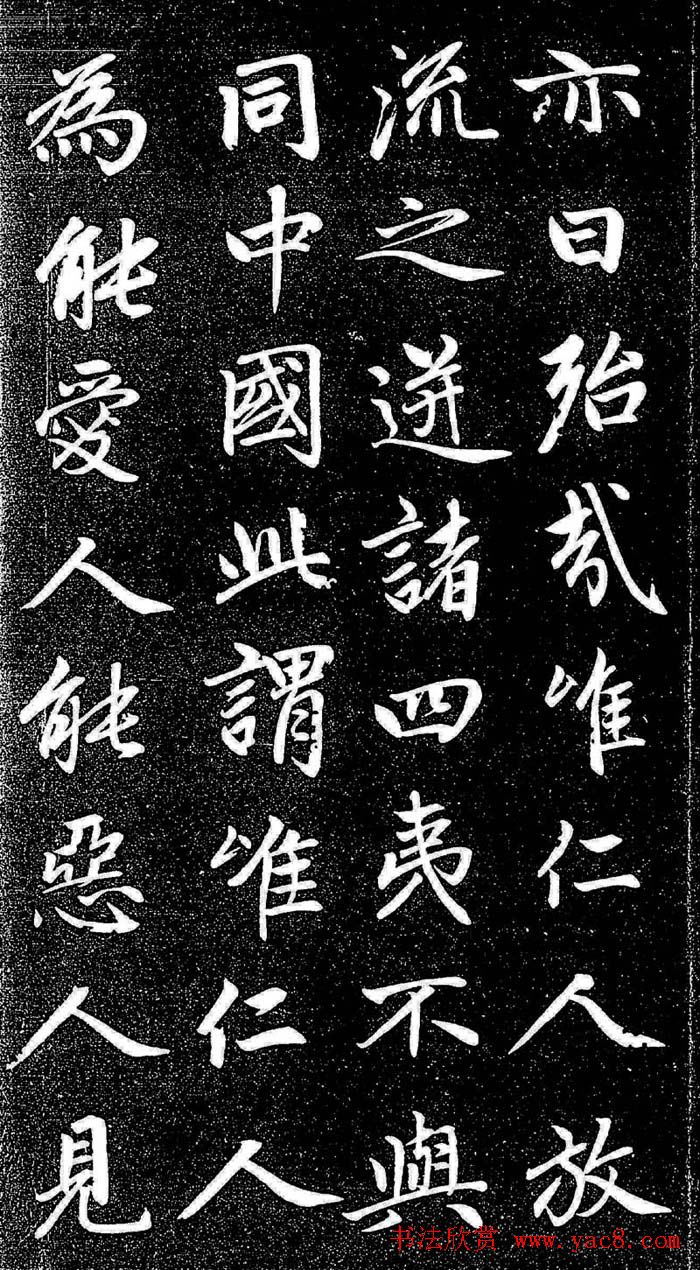 亦曰殆哉唯仁人放
流之迸諸四夷不與
同中國此謂唯仁人
為能愛人能惡人見
书法欣赏 www.yac8.com